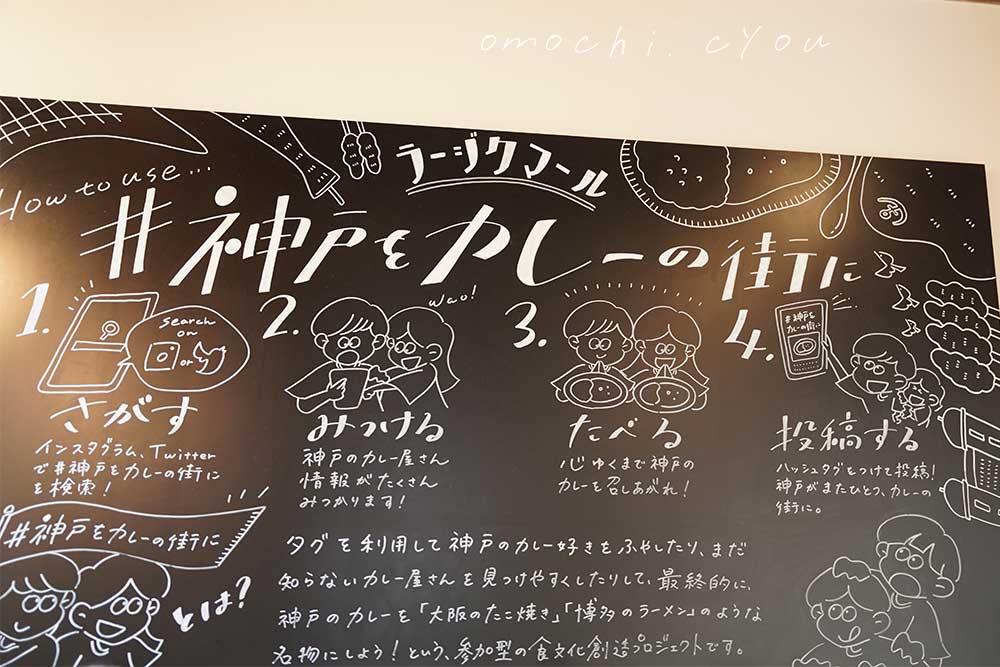 omochi.cyou
ラージクマール
How to use...
#神戸をカレーの街に
1.
search
on
or
さがす
インスタグラム、Twitter
で#神戸をカレーの街に
を検索!
2.
Wao!
みつける
神戸のカレー屋さん
情報がたくさん
みつかります!
3.
たべる
心ゆくまで神戸の
カレーを召しあがれ!
4.
#神戸を
カレーの街に
投稿する
ハッシュタグをつけて投稿!
神戸がまたひとつ、カレーの
街に。
#神戸をカレーの街に
とは?
タグを利用して神戸のカレー好きをふやしたり、まだ
知らないカレー屋さんを見つけやすくしたりして、最終的に、
神戸のカレーを「大阪のたこ焼き」「博多のラーメン」のような
名物にしよう!という、参加型の食文化創造プロジェクトです。